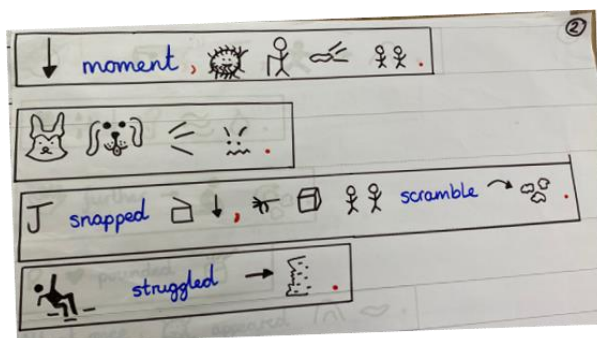 ②
moment, .
.
J snapped , scramble .
struggled .